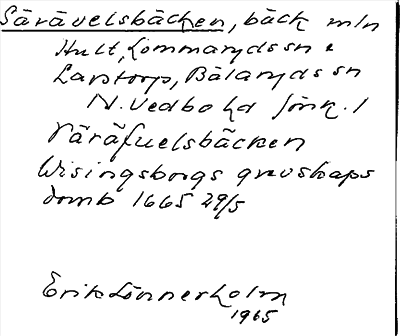 Säråvelsbäcken, bäck mln
Hult, Lommaryds sn &
Larstorp, Bälaryds sn
N. Vedbo hd Jönk. l
Säråfuelsbäcken
Wisingsborgs grevskaps
domb 1665 29/5
Erik Lönnerholm
1965